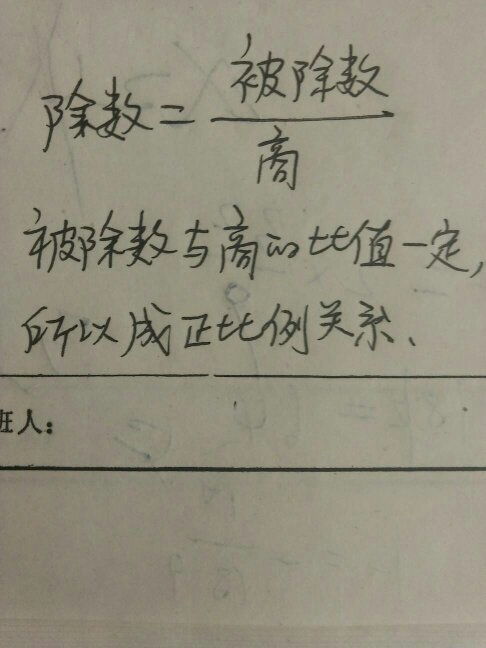 除数=被除数/商
被除数与商的比值一定,
所以成正比例关系.
班人: